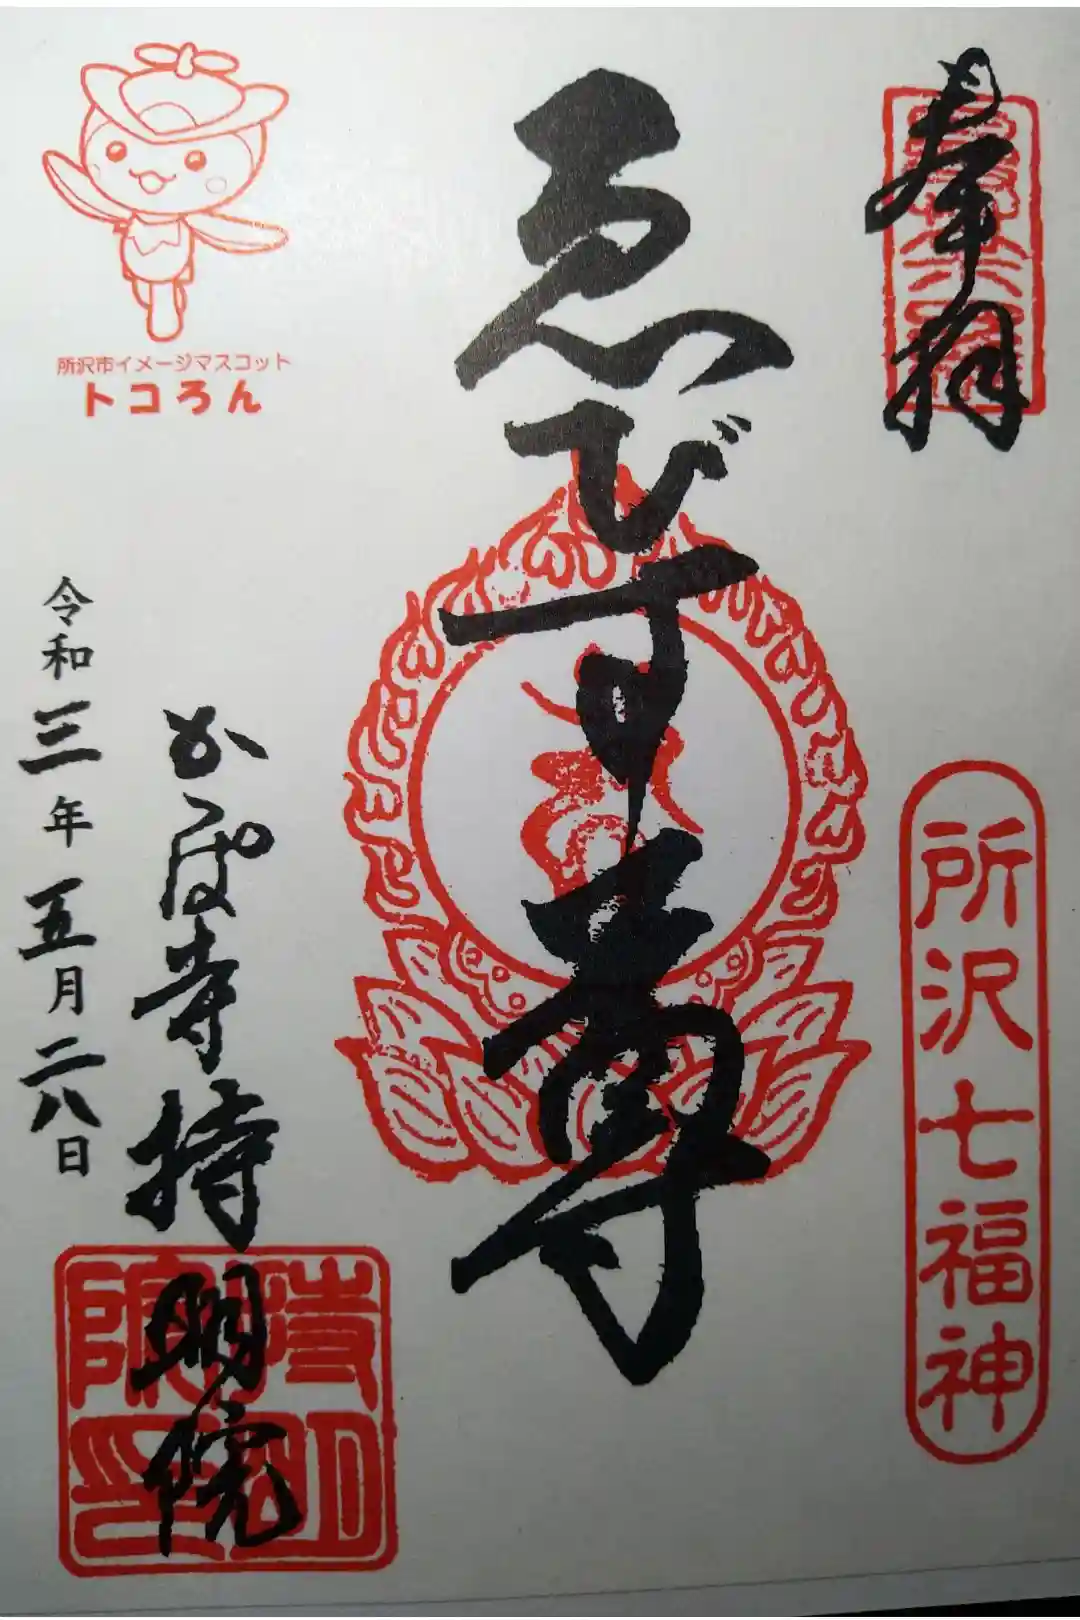 奉拝
所沢七福神
ゑびす尊
所沢市イメージマスコット
トコろん
かっぱ寺持明院
持明院印
令和三年五月二八日